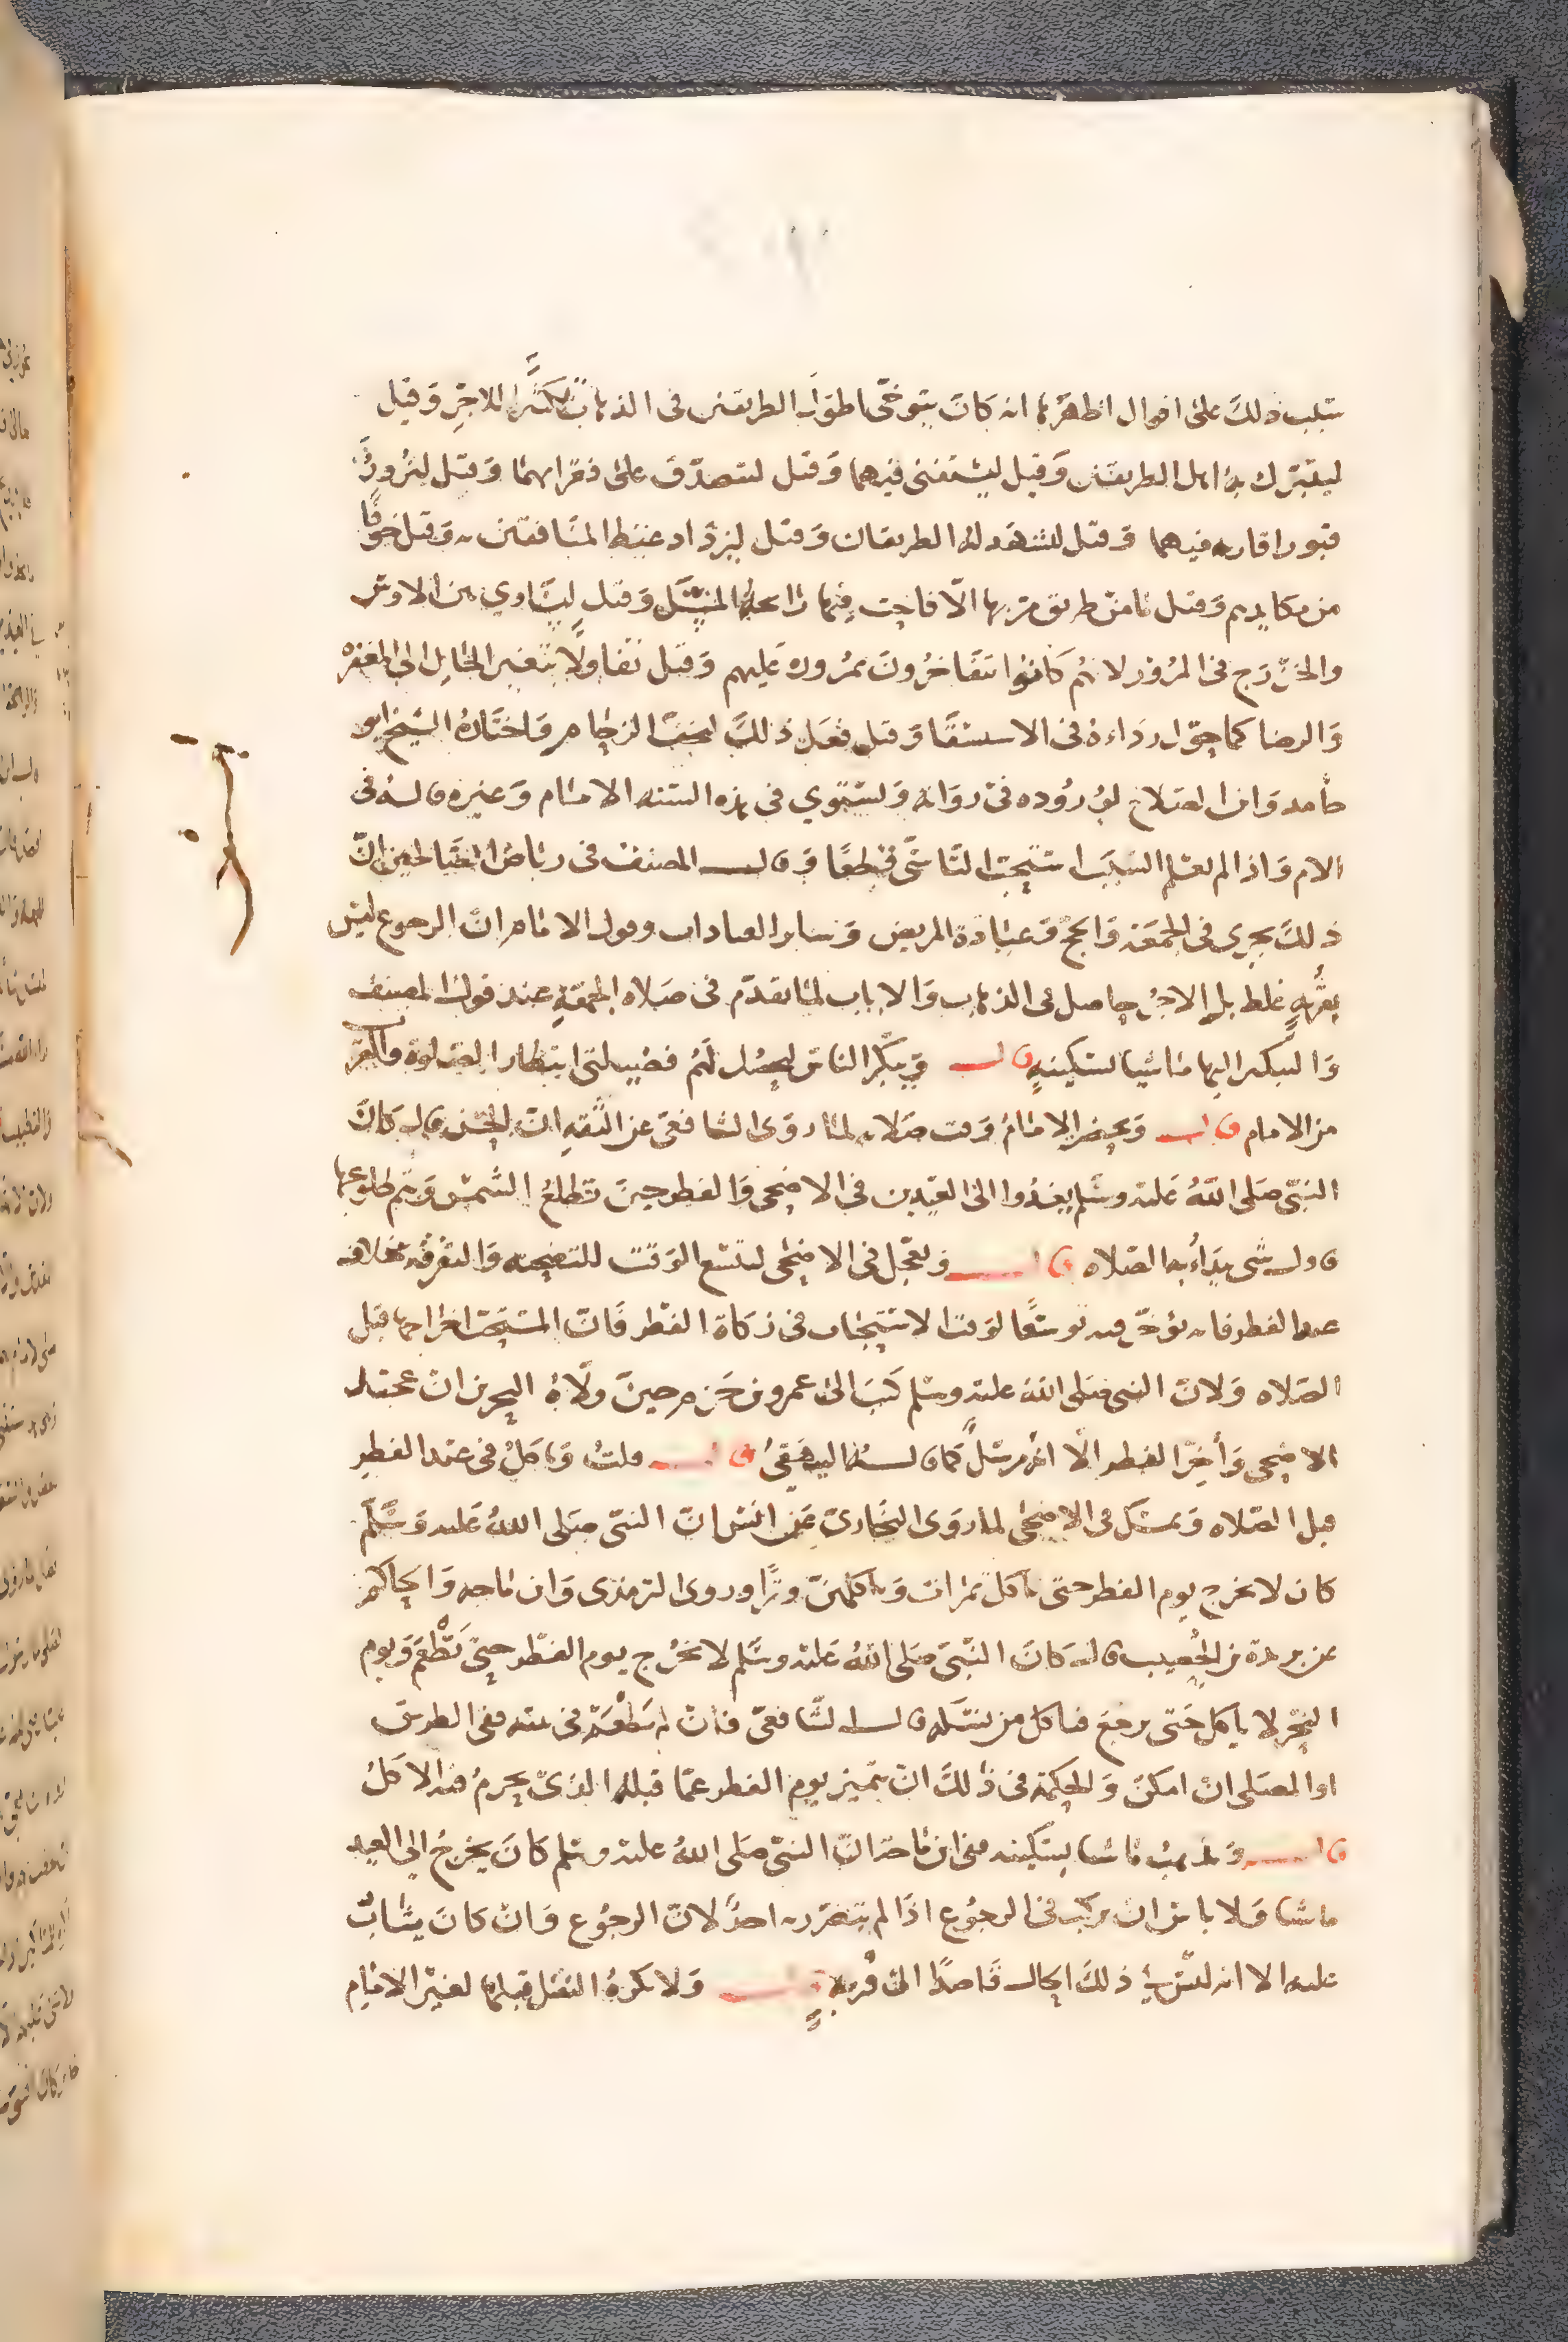 سبب ذلك على اقوال اظهرها انه كان يتوخى اطول الطريقين في الذهاب تكثيرا للاجر وقيل
ليتبرك به اهل الطريقين وقيل ليستفتى فيهما وقيل ليتصدق على فقرائهما وقيل ليزور
قبور اقاربه فيهما وقيل ليشهد له الطريقان وقيل ليزداد غيظ المنافقين وقيل خوفا
من مكايدهم وقيل ما من طريق مر بها الا فاحت فيها رائحة المسك وقيل ليساوي بين الاوس
والخزرج في المرور لانهم كانوا يتفاخرون بمروره عليهم وقيل تفاولا بتغير الحال الى المغفرة
والرضا كما حول رداءه في الاستسقا وقيل فعل ذلك لتجنب الزحام واختاره الشيخ ابو
حامد وابن الصلاح لوروده في رواية ويستوي في هذه السنة الامام وغيره قال في
الام واذا لم يعلم السبب استحب التاسي قطعا وقال المصنف في رياض الصالحين ان
ذلك يجري في الجمعة والحج وعيادة المريض وساير العبادات وقول الامام ان الرجوع ليس
بقربة غلط بل الاجر حاصل في الذهاب والاياب لما تقدم في صلاة الجمعة عند قول المصنف
والتبكير اليها ماشيا بسكينة قال ويبكر الناس ليحصل لهم فضيلتي انتظار الصلوة والقرب
من الامام قال ويحضر الامام وقت صلاته لما روى الشافعي عن الثقه ان الحسن قال كان
النبي صلى الله عليه وسلم يغدوا الى العيدين في الاضحى والفطر حين تطلع الشمس ويتم طلوعها
فاول شى يبدأ به الصلاه قال ويعجل في الاضحى ليتسع الوقت للتضحية والتفرقة بخلاف
عيد الفطر فانه يؤخر فيه توسعا لوقت الاستحباب في زكاة الفطر فان المستحب اخراجها قبل
الصلاه ولان النبي صلى الله عليه وسلم كتب الى عمرو بن حزم حين ولاه البحرين ان عجل
الاضحى وأخر الفطر الا انه مرسل كما قاله البيهقي قال قلت وياكل في عيد الفطر
قبل الصلاه ويمسك في الاضحى لما روى البخاري عن انس ان النبي صلى الله عليه وسلم
كان لا يخرج يوم الفطر حتى ياكل تمرات وياكلهن وترا وروى الترمذي وابن ماجه والحاكم
عن بريدة بن الحصيب قال كان النبي صلى الله عليه وسلم لا يخرج يوم الفطر حتى يطعم ويوم
النحر لا ياكل حتى يرجع فياكل من نسكه قال الشافعي فان لم يطعم في بيته ففي الطريق
او المصلى ان امكن والحكمة في ذلك ان يتميز يوم الفطر عما قبله الذي يحرم فيه الاكل
قال ويذهب ماشيا بسكينه ففي ابن ماجه ان النبي صلى الله عليه وسلم كان يخرج الى العيد
ماشيا ولا باس ان يركب في الرجوع اذا لم يتضرر به احد لان الرجوع وان كان يثاب
عليه الا انه ليس في ذلك الحال قاصدا الى قربة قال ولا يكره النفل قبلها لغير الامام